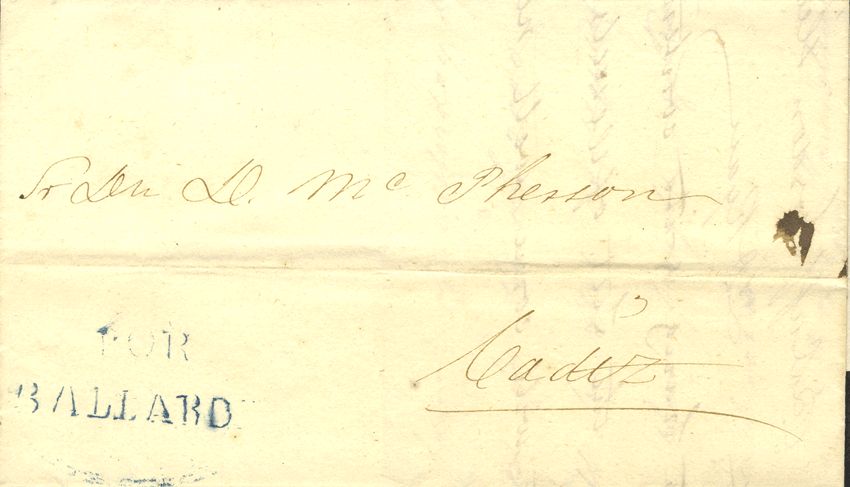 Sr Dn D. Mc Pherson
Cadiz
POR
BALLARD